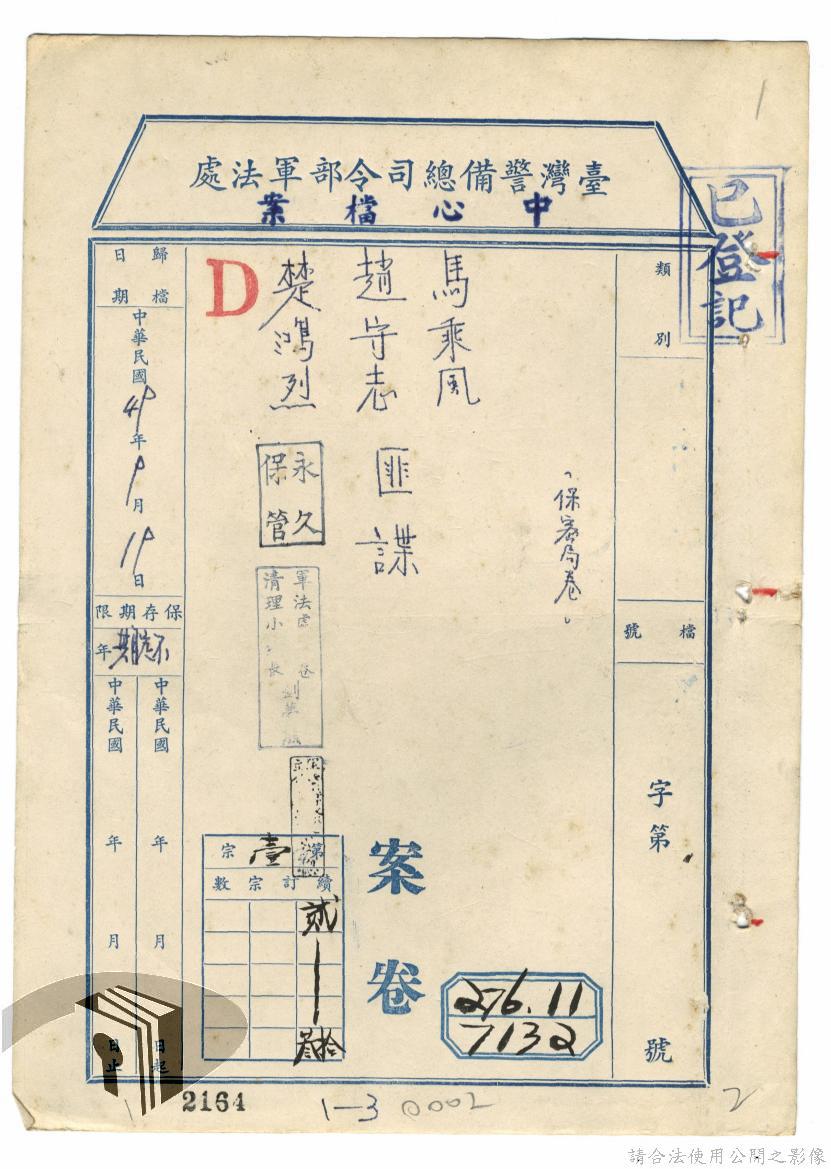 1
臺灣警備總司令部軍法處
中心檔案
已登記
類別
檔號
字第
號
「保密局卷。
馬乘風
趙守志 匪諜
楚鴻烈
D
案卷
永久保管
軍法處
清理小
第壹宗
續訂宗數
貳
叁拾
276.11
7132
歸檔日期
中華民國49年9月19日
保存期限
年
中華民國 年 月 日起
中華民國 年 月 日止
2164
1-3
0002
2
請合法使用公開之影像